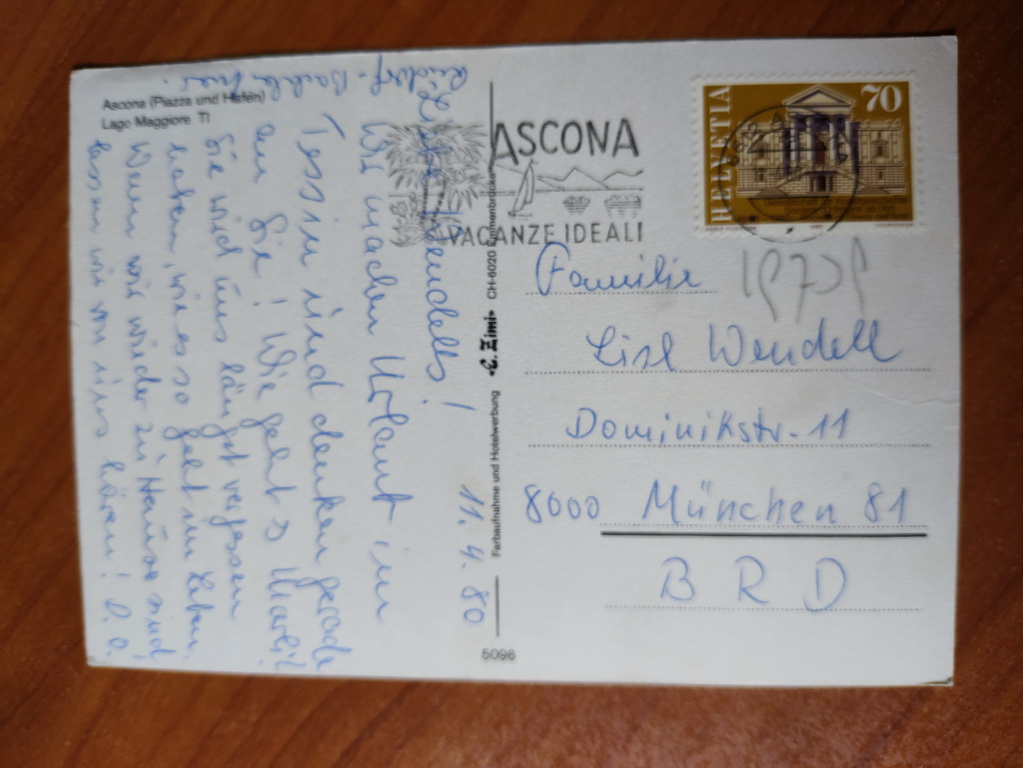 Ascona (Piazza und Hafen)
Lago Maggiore TI
11. 4. 80
Liebe Wendells!
Wir machen Urlaub im
Tessin und denken gerade
an Sie! Wie geht's
Sie wird uns längst vergessen
haben, wie es so geht im Leben.
Wenn wir wieder zu Hause sind,
lassen wir von uns hören!
ASCONA
VACANZE IDEALI
HELVETIA
70
Familie
Lisl Wendell
Dominikstr. 11
8000 München 81
BRD
Farbaufnahme und Hotelwerbung «E. Zimi» CH-6020 Emmenbrücke
5096